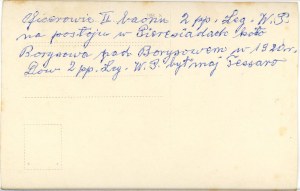 Oficerowie II baonu 2 pp. Leg. W.P.
na postoju w Bieresiadach koło
Borysowa pod Borysowem w 1920 r.
Dow 2 pp. Leg. W.P. był maj Tessaro